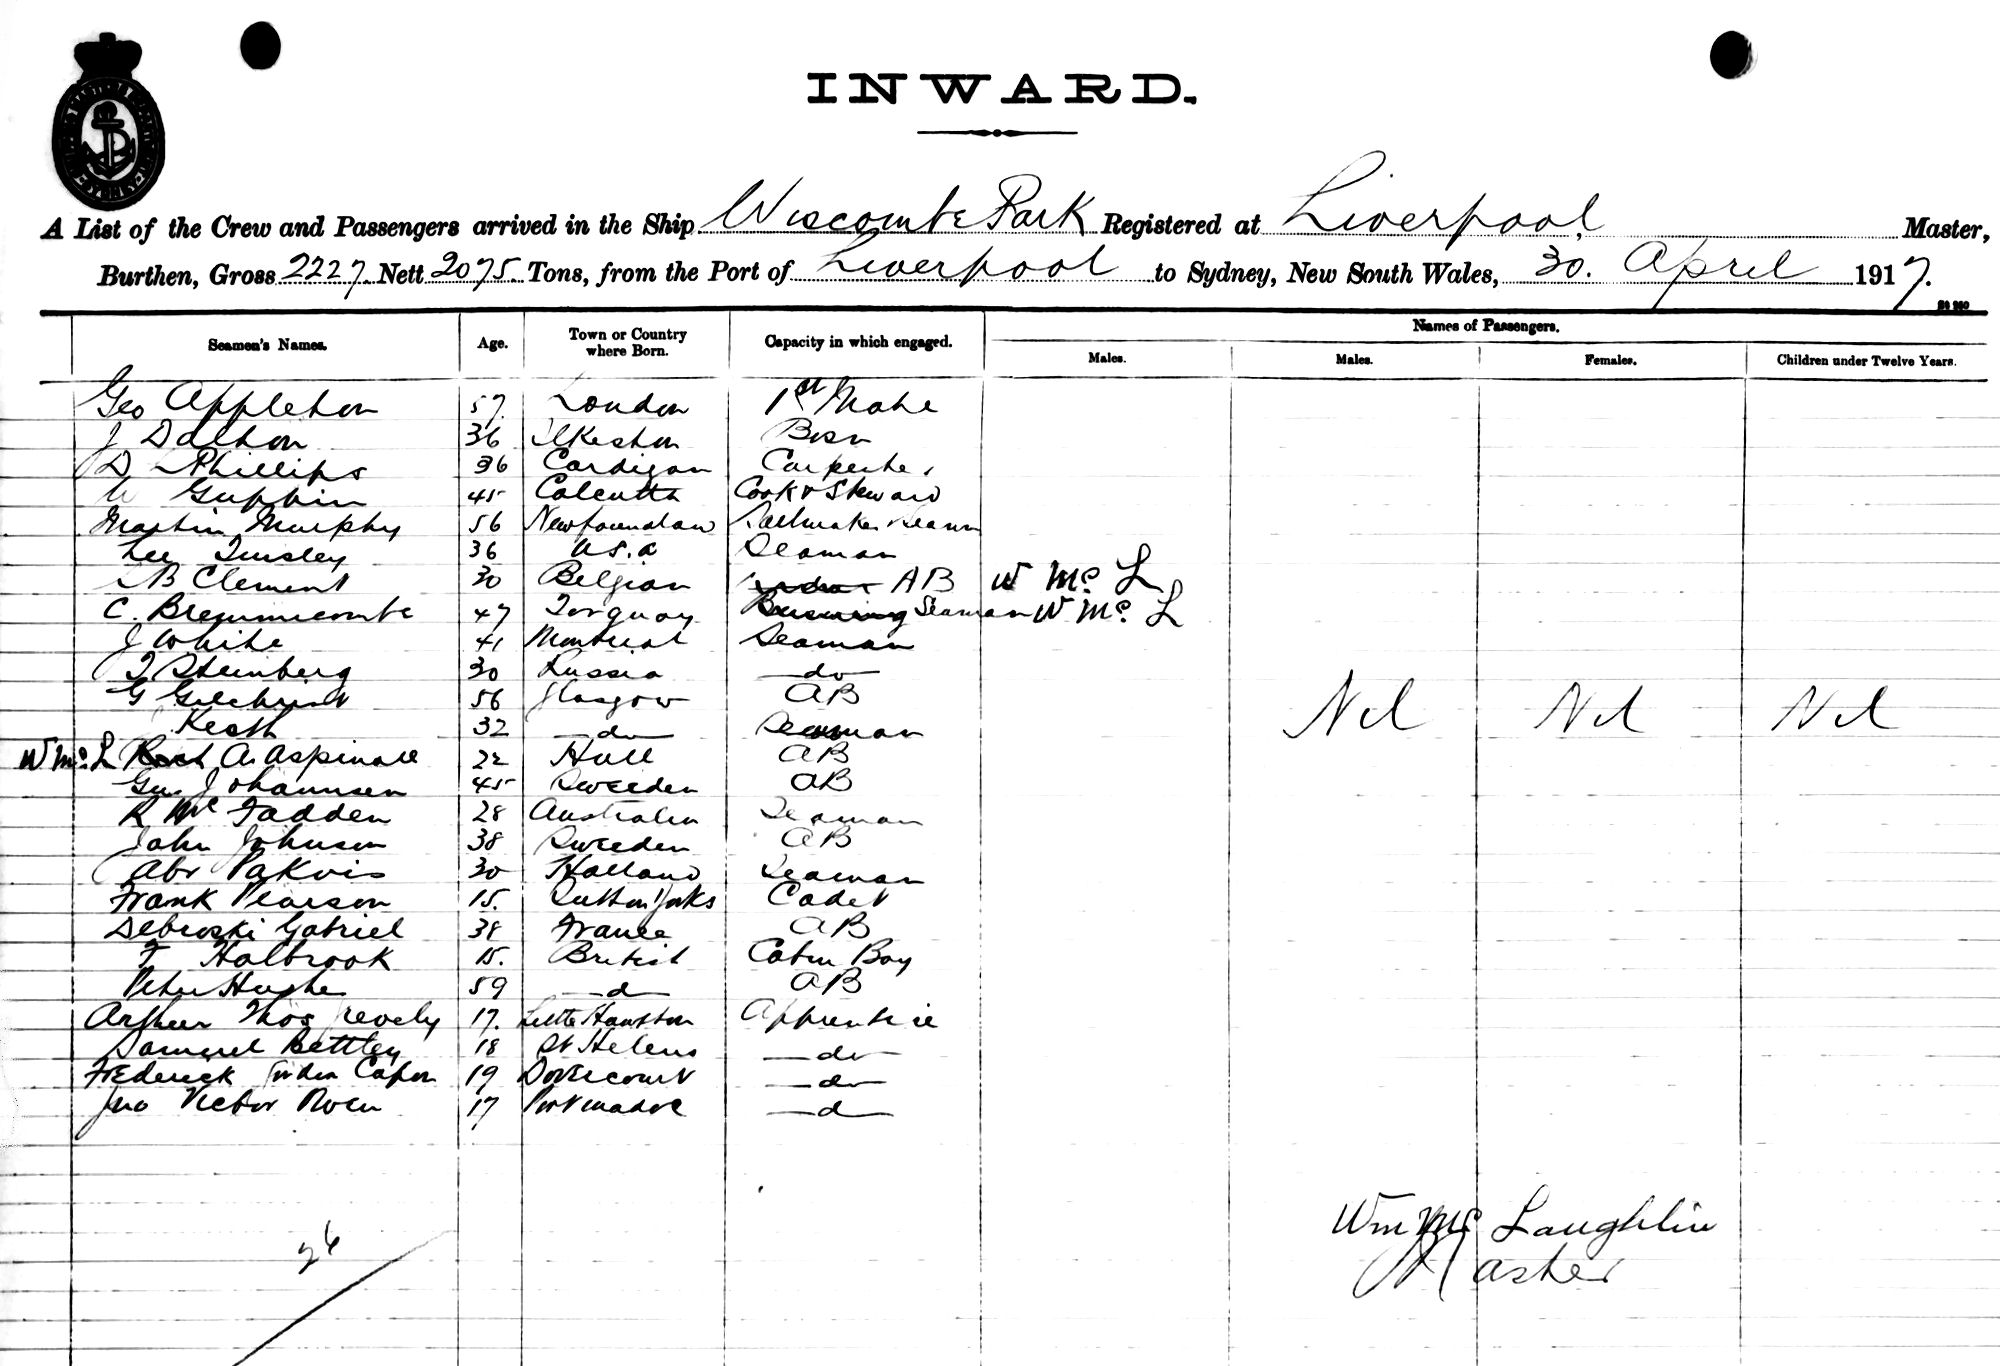 INWARD.
A List of the Crew and Passengers arrived in the Ship Wiscombe Park Registered at Liverpool Master,
Burthen, Gross 2227 Nett 2075 Tons, from the Port of Liverpool to Sydney, New South Wales, 30. April 1917.
Names of Passengers.
Seamen's Names. Age. Town or Country where Born. Capacity in which engaged. Males. Males. Females. Children under Twelve Years.
Geo Appleton 57. London 1st Mate
J Dalton 36 Ilkeston Bosn
D Phillips 36 Cardigan Carpenter
W Guppin 45 Calcutta Cook & Steward
Martin Murphy 56 Newfoundlan Sailmaker Seaman
Lee Tinsley 36 U.S.A Seaman
B Clement 30 Belgian AB W Mc L
C. Bremmicombe 47 Torquay Seaman W Mc L
J White 41 Montreal Seaman
Steinberg 30 Russia do
G Gilchrist 56 Glasgow AB Nil Nil Nil
Keath 32 do Seaman
W Mc L A. Aspinall 22 Hull AB
Gus Johannsen 45 Sweeden AB
R Mc Fadden 28 Australia Seaman
John Johnson 38 Sweeden AB
Abr Pakvis 30 Holland Seaman
Frank Pearson 15. Sutton Yorks Cadet
Debroski Gabriel 38 France AB
F Holbrook 15. British Cabin Boy
Peter Hughes 59 do AB
Arthur Thos 17. Little Apprentice
Samuel Bettley 18 St Helens do
Frederick Capon 19 Dovercourt do
Jno Victor Owen 17 Portmadoc do
26
Wm Mc Laughlin
Master